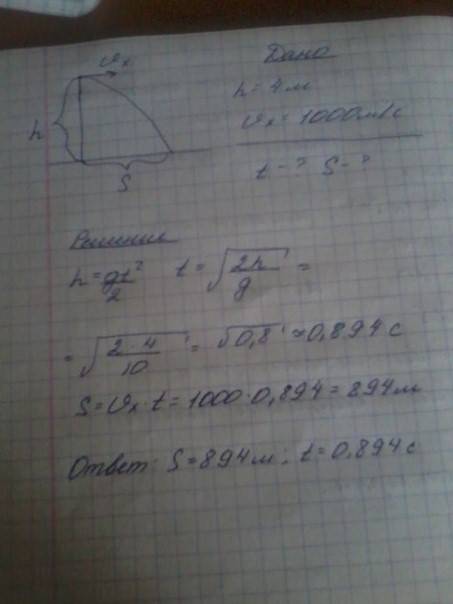 Vx
Дано
h = 4 м
Vx = 1000 м/с
h
S
t - ? S - ?
Решение
h = gt²/2 t = √(2h/g) =
= √(2·4/10) = √0,8 ≈ 0,894 с
S = Vx · t = 1000 · 0,894 = 894 м
Ответ: S = 894 м; t = 0,894 с